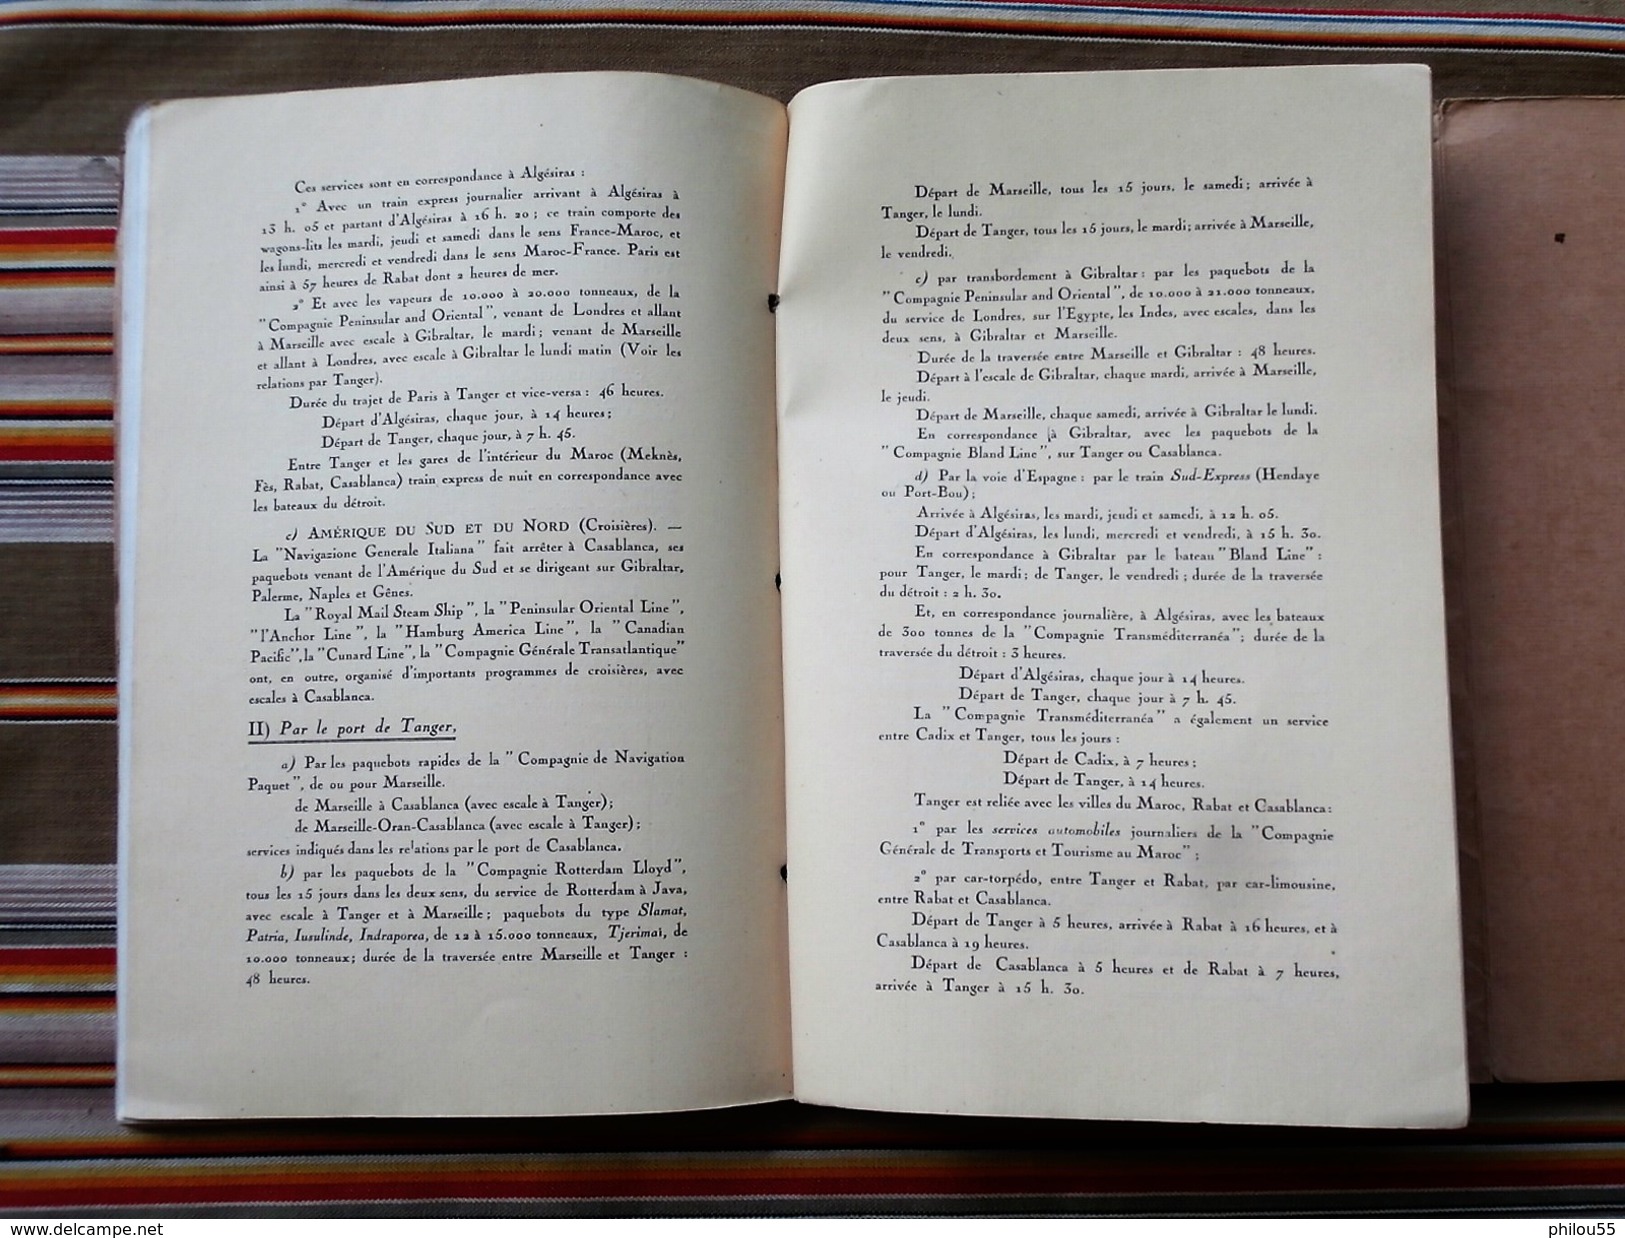 Ces services sont en correspondance à Algésiras :
1° Avec un train express journalier arrivant à Algésiras à
13 h. 05 et partant d'Algésiras à 16 h. 20 ; ce train comporte des
wagons-lits les mardi, jeudi et samedi dans le sens France-Maroc, et
les lundi, mercredi et vendredi dans le sens Maroc-France. Paris est
ainsi à 57 heures de Rabat dont 2 heures de mer.
2° Et avec les vapeurs de 10.000 à 20.000 tonneaux, de la
"Compagnie Peninsular and Oriental", venant de Londres et allant
à Marseille avec escale à Gibraltar, le mardi ; venant de Marseille
et allant à Londres, avec escale à Gibraltar le lundi matin (Voir les
relations par Tanger).
Durée du trajet de Paris à Tanger et vice-versa : 46 heures.
Départ d'Algésiras, chaque jour, à 14 heures ;
Départ de Tanger, chaque jour, à 7 h. 45.
Entre Tanger et les gares de l'intérieur du Maroc (Meknès,
Fès, Rabat, Casablanca) train express de nuit en correspondance avec
les bateaux du détroit.
c) AMÉRIQUE DU SUD ET DU NORD (Croisières). —
La "Navigazione Generale Italiana" fait arrêter à Casablanca, ses
paquebots venant de l'Amérique du Sud et se dirigeant sur Gibraltar,
Palerme, Naples et Gênes.
La "Royal Mail Steam Ship", la "Peninsular Oriental Line",
"l'Anchor Line", la "Hamburg America Line", la "Canadian
Pacific", la "Cunard Line", la "Compagnie Générale Transatlantique"
ont, en outre, organisé d'importants programmes de croisières, avec
escales à Casablanca.
II) Par le port de Tanger,
a) Par les paquebots rapides de la "Compagnie de Navigation
Paquet", de ou pour Marseille.
de Marseille à Casablanca (avec escale à Tanger) ;
de Marseille-Oran-Casablanca (avec escale à Tanger) ;
services indiqués dans les relations par le port de Casablanca.
b) par les paquebots de la "Compagnie Rotterdam Lloyd",
tous les 15 jours dans les deux sens, du service de Rotterdam à Java,
avec escale à Tanger et à Marseille ; paquebots du type Slamat,
Patria, Iusulinde, Indraporea, de 12 à 15.000 tonneaux, Tjerimaï, de
10.000 tonneaux ; durée de la traversée entre Marseille et Tanger :
48 heures.
Départ de Marseille, tous les 15 jours, le samedi ; arrivée à
Tanger, le lundi.
Départ de Tanger, tous les 15 jours, le mardi ; arrivée à Marseille,
le vendredi.
c) par transbordement à Gibraltar : par les paquebots de la
"Compagnie Peninsular and Oriental", de 10.000 à 21.000 tonneaux,
du service de Londres, sur l'Egypte, les Indes, avec escales, dans les
deux sens, à Gibraltar et Marseille.
Durée de la traversée entre Marseille et Gibraltar : 48 heures.
Départ à l'escale de Gibraltar, chaque mardi, arrivée à Marseille,
le jeudi.
Départ de Marseille, chaque samedi, arrivée à Gibraltar le lundi.
En correspondance à Gibraltar, avec les paquebots de la
"Compagnie Bland Line", sur Tanger ou Casablanca.
d) Par la voie d'Espagne : par le train Sud-Express (Hendaye
ou Port-Bou) ;
Arrivée à Algésiras, les mardi, jeudi et samedi, à 12 h. 05.
Départ d'Algésiras, les lundi, mercredi et vendredi, à 15 h. 30.
En correspondance à Gibraltar par le bateau "Bland Line" :
pour Tanger, le mardi ; de Tanger, le vendredi ; durée de la traversée
du détroit : 2 h. 30.
Et, en correspondance journalière, à Algésiras, avec les bateaux
de 300 tonnes de la "Compagnie Transméditerranéa" ; durée de la
traversée du détroit : 3 heures.
Départ d'Algésiras, chaque jour à 14 heures.
Départ de Tanger, chaque jour à 7 h. 45.
La "Compagnie Transméditerranéa" a également un service
entre Cadix et Tanger, tous les jours :
Départ de Cadix, à 7 heures ;
Départ de Tanger, à 14 heures.
Tanger est reliée avec les villes du Maroc, Rabat et Casablanca :
1° par les services automobiles journaliers de la "Compagnie
Générale de Transports et Tourisme au Maroc" ;
2° par car-torpédo, entre Tanger et Rabat, par car-limousine,
entre Rabat et Casablanca.
Départ de Tanger à 5 heures, arrivée à Rabat à 16 heures, et à
Casablanca à 19 heures.
Départ de Casablanca à 5 heures et de Rabat à 7 heures,
arrivée à Tanger à 15 h. 30.
www.delcampe.net
philou55